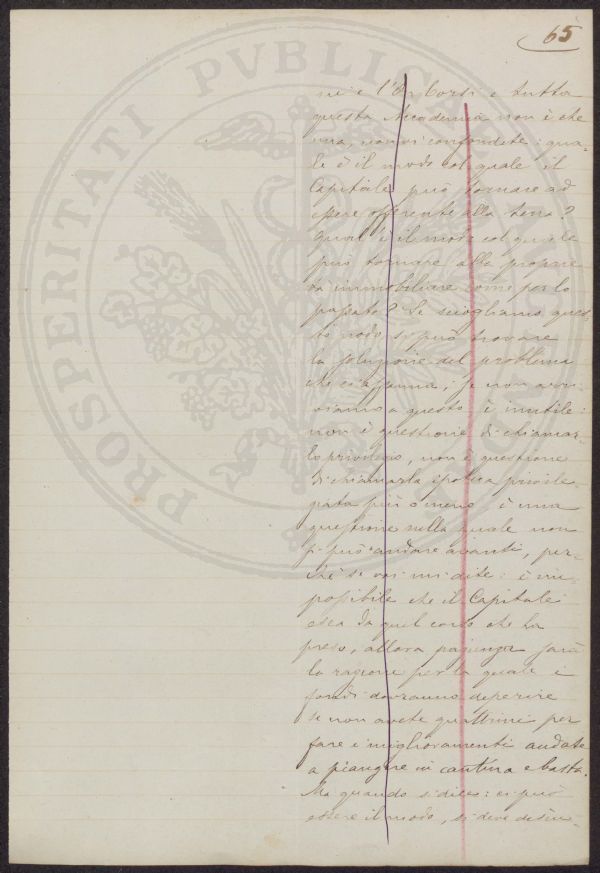 65
ne è l'On. Corsi e tutta
questa Accademia non è che
una, non vi confondete: qua-
le è il modo col quale il
Capitale può tornare ad
essere offerente alla terra?
Qual'è il modo col quale
può tornare alla proprie
tà immobiliare come per lo
passato? Se sciogliamo ques-
to nodo si può trovare
la soluzione del problema
che ci affanna; se non arri
viamo a questo è inutile:
non è questione di chiamar-
lo privilegio, non è questione
di chiamarla ipoteca privile
giata più o meno è una
questione nella quale non
si può andare avanti, per-
chè se voi mi dite: è im-
possibile che il Capitale
esca da quel corso che ha
preso, allora pazienza sarà
la ragione per la quale i
fondi dovranno deperire
se non avete quattrini per
fare i miglioramenti andate
a piangere in cantina e basta.
Ma quando si dice: ci può
essere il modo, si deve
PROSPERITATI PVBLICAE